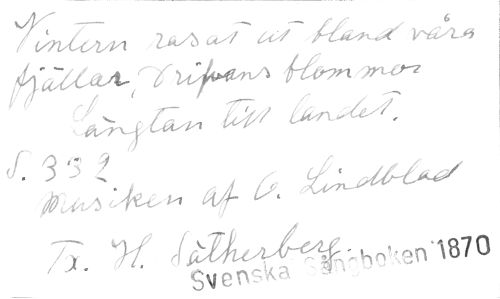 Vintern rasat ut bland våra
fjällar, Drifvans blommor
Längtan till landet.
S. 332
Musiken af O. Lindblad
Tx. H. Sätherberg.
Svenska Sångboken 1870